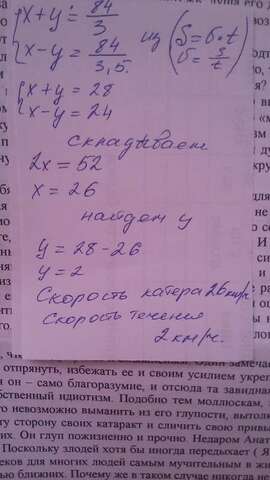 { x + y = 84/3
{ x - y = 84/3,5. из (S = v · t
v = S/t)
{ x + y = 28
{ x - y = 24
складываем
2x = 52
x = 26
найдем y
y = 28 - 26
y = 2
Скорость катера 26 км/ч.
Скорость течения
2 км/ч.
отпрянуть, избежать ее и своим усилием укреп
я он – само благоразумие, и отсюда та завидная
бственный идиотизм. Подобно тем моллюскам,
го невозможно выманить из его глупости, вытолк
ту сторону своих катаракт и сличить свою привы
ких. Он глуп пожизненно и прочно. Недаром Анат
Поскольку злодей хотя бы иногда передыхает ( Я
веков для многих людей самым мучительным в жи
ью ближних. Почему же в таком случае никогда не